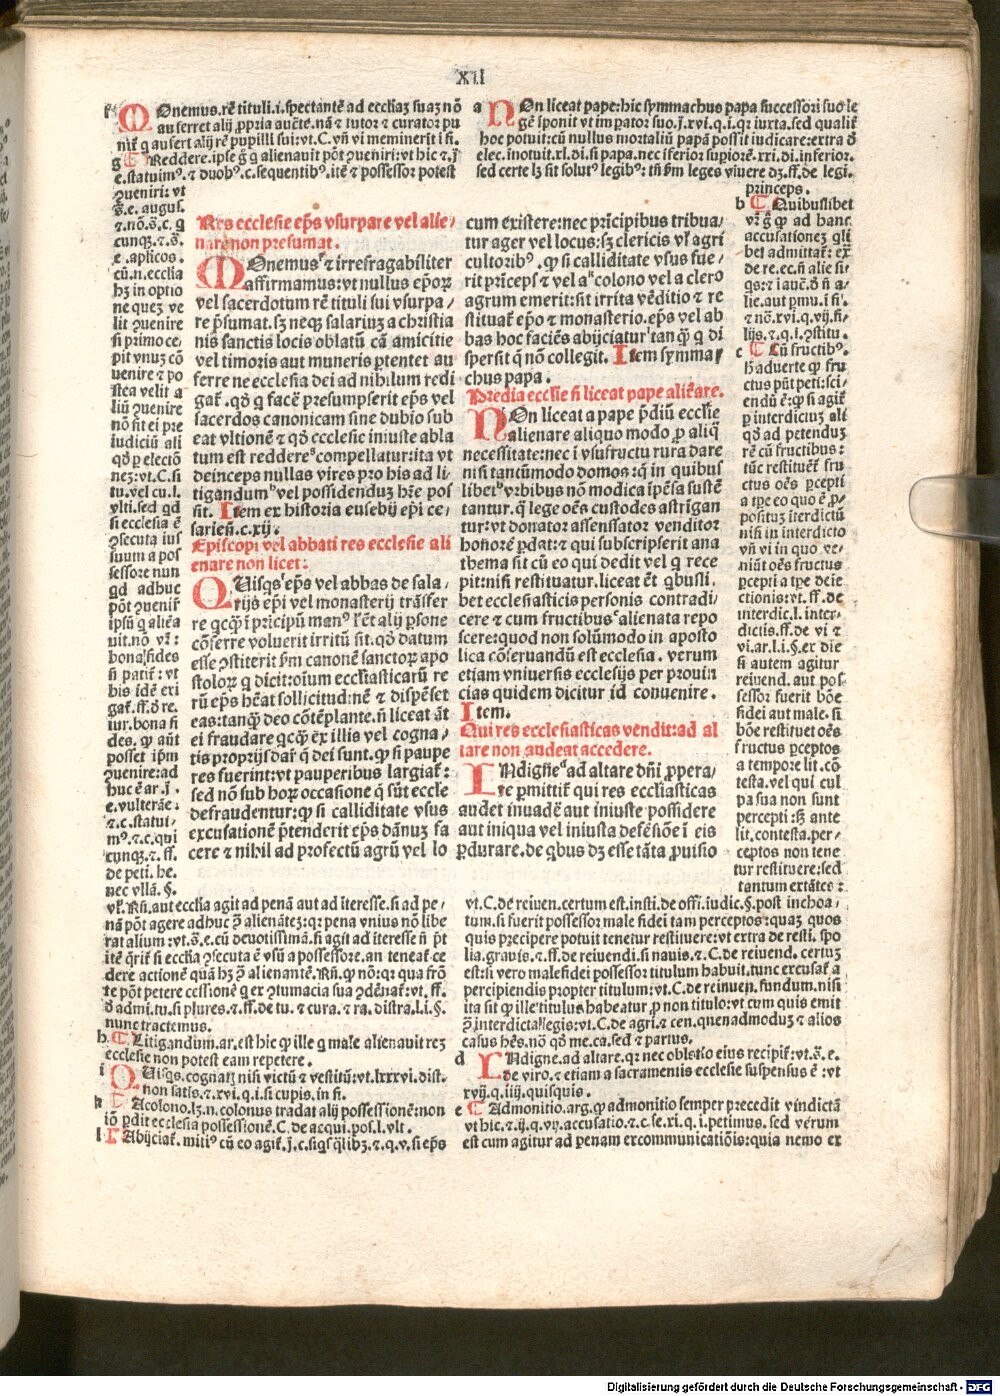 XII
MOnemus.rē tituli.i.spectantē ad eccłiaꝫ suaꝫ nō
auferret alij ꝓpria aucte.nā ⁊ tutor ⁊ curator pu
g Reddere.ipse
e.statuimꝰ.⁊ duobꝰ.c.sequentibꝰ.itē ⁊ possessor potest
ꝯueniri: vt
s̄.e. augus.
⁊.nō.s̄.c. q
cunqꝫ.⁊.s̄.
e.aplicos.
cū.n.ecclia
hꝫ in optio
ne queꝫ ve
lit ꝯuenire
si primo ce
pit vnuꝫ cō
uenire ⁊ po
stea velit a
liū ꝯuenire
nō sit ei pre
iudiciū ali
qd̄ ꝑ electō
neꝫ:vt.C.si
tu.vel cu.l.
vlti.sed qd
si ecclesia ē
ꝯsecuta ius
suum a pos
sessore nun
qd adhuc
pōt ꝯuenir̄
ipsū q aliēa
uit.nō vr̄:
bonafides
si patit̄: vt
his idē exi
gat̄.ff.d̄ re.
iur.bona fi
des. ꝙ aūt
posset ipm̄
ꝯuenire:ad
huc ē ar.j.
e.vulteranē:
⁊.c.statui/
mꝰ.⁊.c.qui
cunqꝫ.⁊.ff.
de peti. he.
nec vllā. §.
Res ecclesie ep̄s vsurpare vel alie/
nare non presumat.
MOnemus ⁊ irrefragabiliter
affirmamus:vt nullus ep̄oꝝ
vel sacerdotum rē tituli sui vsurpa/
re p̄sumat.sꝫ neqꝫ salariuꝫ a christia
nis sanctis locis oblatū cā amicitie
vel timoris aut muneris p̄tentet au
ferre ne ecclesia dei ad nihilum redi
gat̄.qd̄ q facē presumpserit ep̄s vel
sacerdos canonicam sine dubio sub
eat vltionē ⁊ qd̄ ecclesie iniuste abla
tum est reddere compellatur:ita vt
deinceps nullas vires pro his ad li/
tigandum vel possidenduꝫ hēe pos
sit. Item ex historia eusebij ep̄i ce/
sarieñ.c.xij.
Episcopi vel abbati res ecclesie ali
enare non licet:
QUisqs ep̄s vel abbas de sala/
rijs ep̄i vel monasterij trāsfer
re qcqꝙ ī pricipū manꝰ ł et̄ alij ꝑsone
cōferre voluerit irritū sit.qd̄ datum
esse ꝯstiterit p̄m canonē sanctoꝝ apo
stoloꝝ q dicit:oīum eccłiasticarū re
rū ep̄s hēat sollicitud:nē ⁊ dispēset
eas:tanqꝙ deo cōtēplante.ñ liceat āt
ei fraudare qcqꝙ ex illis vel cogna/
tis proprijs dar̄ q dei sunt.ꝙ si paupe
res fuerint:vt pauperibus largiat̄:
sed nō sub hoꝝ occasione q sūt eccle
defraudentur:ꝙ si calliditate vsus
excusationē p̄tenderit ep̄s dānuꝫ fa
cere ⁊ nihil ad profectū agrū vel lo
vł.Rñ.aut ecclia agit ad penā aut ad iteresse.si ad pe/
nā pōt agere adhuc ꝯ̄ alienāteꝫ:q: pena vnius nō libe
rat alium:vt.s̄.e.cū deuotissimā.si agit ad iteresse ñ p̄t
itē q̄rit̄ si ecclia ꝯsecuta ē vsū a possessore.an teneat̄ ce
dere actionē quā hꝫ ꝯ̄ alienantē.Rñ.ꝙ nō:q: qua frō
te pōt petere cessionē q ex ꝯtumacia sua ꝯdēnat̄:vt.ff.
d̄ admi.tu.si plures.⁊.ff.de tu.⁊ cura.⁊ ra.distra.l.i.§.
nunc tractemus.
h Litigandum.ar.est hic ꝙ ille q male alienauit reꝫ
ecclesie non potest eam repetere.
i QUisqs.cognatꝫ nisi victū ⁊ vestitū:vt.lxxxvi.dist.
non satis.⁊.xvi.q.i.si cupis.in fi.
k A colono.lꝫ.n.colonus tradat alij possessionē:non
iō ꝑdit ecclesia possessionē.C.de acqui.pos.l.vlt.
l Abijciat̄.mitiꝰ cū eo agit̄.j.c.siqs qlibꝫ.⁊.q.v.si ep̄s
a NOn liceat pape:hic symmachus papa successori suo le
gē īponit vt impator suo.j.xvi.q.i.q: iuxta.sed qualit̄
hoc potuit:cū nullus mortaliū papā possit iudicare:extra d̄
elec.inotuit.xl.di.si papa.nec iferior supiorē.xxi.di.inferior.
sed certe lꝫ sit solutꝰ legibꝰ: tñ ꝑm leges viuere dꝫ.ff.de legi.
princeps.
b Quibuslibet
vr̄ ꝙ ad hanc
accusationeꝫ qli
bet admittat̄: ex
de re.ec.ñ alie si
lie.aut ꝑmu.i fi.
⁊ nō.xvi.q.vij.fi/
lijs.⁊.q.i.ꝯstitu.
c Cū fructibꝰ.
h̄ aduerte ꝙ fru
ctus pn̄t peti:sci/
endū ē:ꝙ si agit̄
ꝑ interdictuꝫ ali
qd̄ ad petenduꝫ
rē cū fructibus:
tūc restituēt̄ fru
ctus oēs ꝑcepti
a tpe eo quo ē ꝓ/
posituꝫ iterdictū
nisi in interdicto
vñ vi in quo ve/
niūt oēs fructus
ꝑcepti a tpe deie
ctionis:vt.ff.de
interdic.l. inter/
dictis.ff.de vi ⁊
vi.ar.l.i.§.ex die
si autem agitur
reiuend. aut pos
sessor fuerit bōe
fidei aut male.si
bōe restituet oēs
fructus ꝑceptos
a tempore lit.cō
testa.vel qui cul
pa sua non sunt
percepti:sꝫ ante
lit.contesta.per/
ceptos non tene
tur restituere:sed
tantum extātes:
cum existere:nec pricipibus tribua/
tur ager vel locus:sꝫ clericis vł agri
cultoribꝰ.ꝙ si calliditate vsus fue/
rit prīceps ⁊ vel a colono vel a clero
agrum emerit:sit irrita vēditio ⁊ re
stituat̄ ep̄o ⁊ monasterio.ep̄s vel ab
bas hoc faciēs abijciatur tanqꝙ q di
spersit q nō collegit. Item symma/
chus papa.
Predia ecclie ñ liceat pape aliēare.
NOn liceat a pape p̄diū ecclie
alienare aliquo modo ꝓ aliq
necessitate:nec ī vsufructu rura dare
nisi tantūmodo domos:q in quibus
libet vrbibus nō modica īpēsa sustē
tantur.q̄ lege oēs custodes astrīgan
tur:vt donator assensator venditor
honorē ꝑdat:⁊ qui subscripserit ana
thema sit cū eo qui dedit vel q rece
pit:nisi restituatur.liceat ēt qbusli.
bet ecclesiasticis personis contradi/
cere ⁊ cum fructibus alienata repo
scere:quod non solūmodo in aposto
lica cōseruandū est ecclesia. verum
etiam vniuersis ecclesijs per prouin
cias quidem dicitur id conuenire.
Item.
Qui res ecclesiasticas vendit:ad al
tare non audeat accedere.
INdigne ad altare dñi ꝓpera/
re ꝑmittit̄ qui res eccłiasticas
audet inuadē aut iniuste possidere
aut iniqua vel iniusta defēsiōe ī eis
ꝑdurare.de qbus dꝫ esse tāta ꝓuisio
vt.C.de reiuen.certum est.insti.de offi.iudic.§.post inchoa/
tum.si fuerit possessor male fidei tam perceptos:quaꝫ quos
quis precipere potuit tenetur restituere:vt extra de resti. spo
lia.grauis.⁊.ff.de reiuendi.si nauis.⁊.C.de reiuend. certuꝫ
est:si vero malefidei possessor titulum habuit.tunc excusat̄ a
percipiendis propter titulum:vt.C.de reinuen.fundum.nisi
ita sit ꝙ ille titulus habeatur ꝓ non titulo:vt cum quis emit
ꝯ̄ interdictałegis:vt.C.de agri.⁊ cen.quenadmoduꝫ ⁊ alios
casus hēs.nō qō me.ca.sed ⁊ partus.
d INdigne.ad altare.q: nec oblatio eius recipit̄:vt.s̄.e.
de viro.⁊ etiam a sacramentis ecclesie suspensus ē:vt
xvij.q.iiij.quisquis.
e Admonitio.arg.ꝙ admonitio semper precedit vindictā
vt hic.⁊.ij.q.vij.accusatio.⁊.c.se.xi.q.i.petimus. sed verum
est cum agitur ad penam excommunicatiōis:quia nemo ex
Digitalisierung gefördert durch die Deutsche Forschungsgemeinschaft - DFG